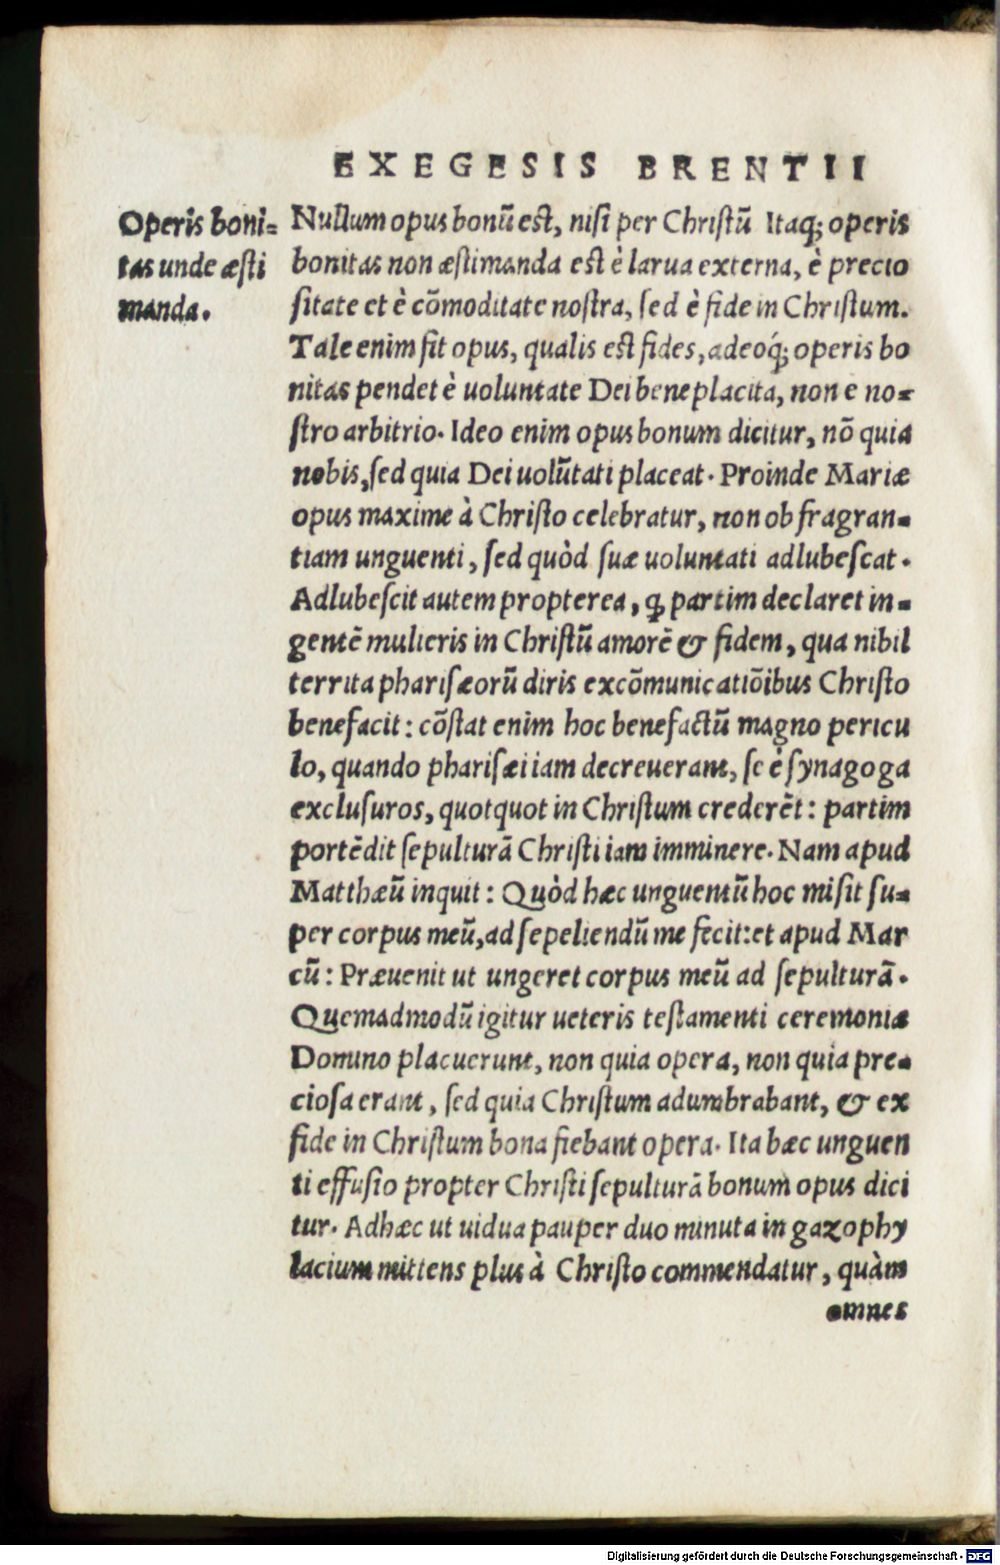 EXEGESIS BRENTII
Operis boni=
tas unde æsti
manda.
Nullum opus bonū est, nisi per Christū Itaq; operis
bonitas non æstimanda est è larua externa, è precio
sitate et è cōmoditate nostra, sed è fide in Christum.
Tale enim fit opus, qualis est fides, adeoq́; operis bo
nitas pendet è uoluntate Dei beneplacita, non e no=
stro arbitrio. Ideo enim opus bonum dicitur, nō quia
nobis, sed quia Dei uolūtati placeat. Proinde Mariæ
opus maxime à Christo celebratur, non ob fragran=
tiam unguenti, sed quòd suæ uoluntati adlubescat.
Adlubescit autem propterea, ꝙ partim declaret in=
gentē mulieris in Christū amorē & fidem, qua nihil
territa pharisæorū diris excōmunicatiōibus Christo
benefacit: cōstat enim hoc benefactū magno pericu
lo, quando pharisæi iam decreuerant, se è synagoga
exclusuros, quotquot in Christum crederēt: partim
portēdit sepulturā Christi iam imminere. Nam apud
Matthæū inquit: Quòd hæc unguentū hoc misit su=
per corpus meū, ad sepeliendū me fecit: et apud Mar
cū: Præuenit ut ungeret corpus meū ad sepulturā.
Quemadmodū igitur ueteris testamenti ceremoniæ
Domino placuerunt, non quia opera, non quia pre=
ciosa erant, sed quia Christum adumbrabant, & ex
fide in Christum bona fiebant opera. Ita hæc unguen
ti effusio propter Christi sepulturā bonum opus dici
tur. Adhæc ut uidua pauper duo minuta in gazophy
lacium mittens plus à Christo commendatur, quàm
omnes
Digitalisierung gefördert durch die Deutsche Forschungsgemeinschaft - DFG